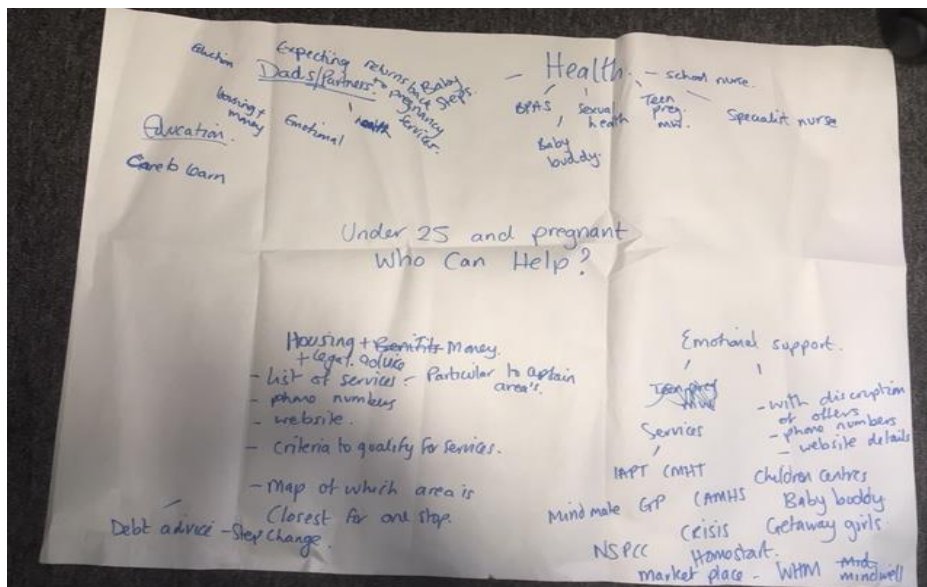 Expecting
Dads/Partners.
returns back
to pregnancy
services.
Baby
Steps.
housing +
money
Emotional
health
Education.
Care to learn
- Health. - school nurse.
BPAS
Sexual
health
Teen
preg
mw.
Specialist nurse
Baby
buddy.
Under 25 and pregnant
Who Can Help?
Housing + Benifits Money.
+ legal advice
- List of services - Particular to
area's.
- phone numbers
- website.
- Criteria to qualify for services.
- Map of which area is
Closest for one stop.
Debt advice - Step Change.
Emotional support.
Teen preg
mw
Services
- with discruption
of offers
- phone numbers
- website details
IAPT CMHT
Children centres
Mind mate GP CAMHS
Baby buddy
Crisis
Getaway girls
NSPCC
Homestart.
market place - WHM Mid
mindwell